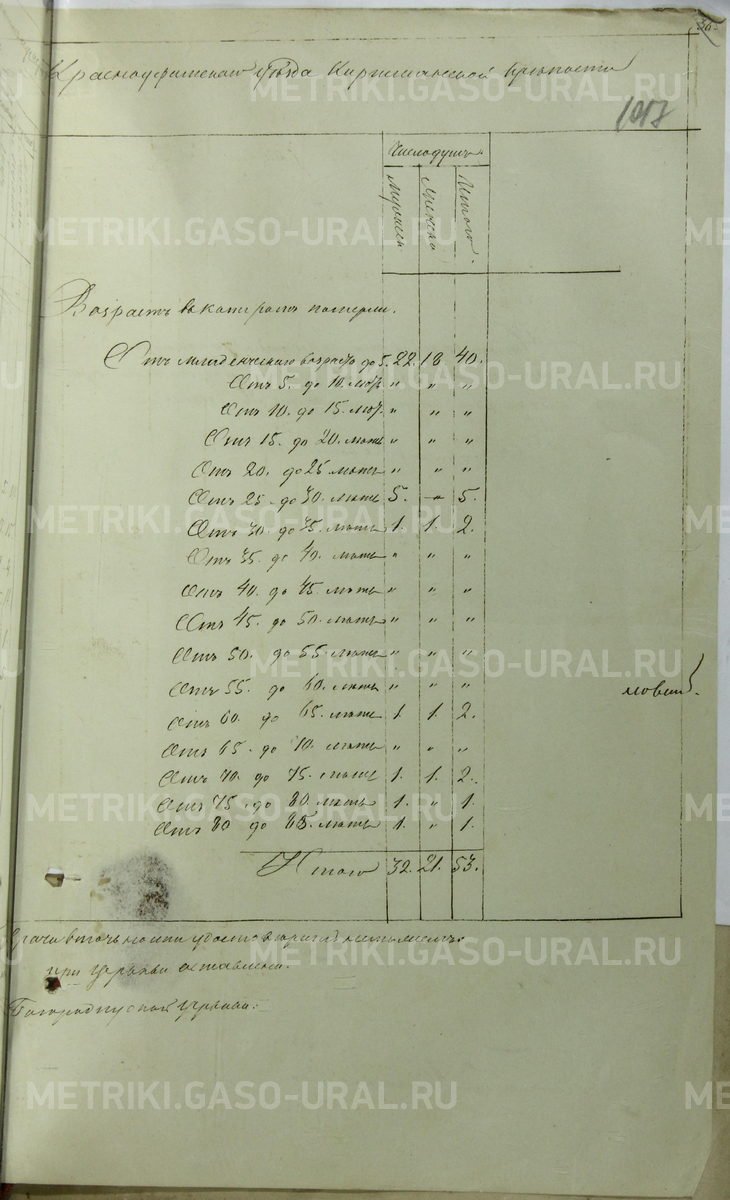 Красноуфимскаго уѣзда Киргишанской крѣпости
1017
Число душъ
Мужеска
Женска
Итого.
Возрастъ въ которомъ померли.
Отъ младенческаго возраста до 5. 22. 18 40.
Отъ 5. до 10. лѣтъ „ „ „
Отъ 10. до 15. лѣтъ „ „ „
Отъ 15. до 20. лѣтъ „ „ „
Отъ 20. до 25 лѣтъ „ „ „
Отъ 25. до 30. лѣтъ 5. „ 5.
Отъ 30. до 35. лѣтъ 1. 1. 2.
Отъ 35. до 40. лѣтъ „ „ „
Отъ 40. до 45. лѣтъ „ „ „
Отъ 45. до 50. лѣтъ „ „ „
Отъ 50. до 55. лѣтъ „ „ „
Отъ 55. до 60. лѣтъ „ „ „
Отъ 60. до 65. лѣтъ 1. 1. 2.
Отъ 65. до 70. лѣтъ „ „ „
Отъ 70. до 75. лѣтъ 1. 1. 2.
Отъ 75. до 80. лѣтъ 1. „ 1.
Отъ 80 до 85. лѣтъ 1. „ 1.
Итого 32. 21. 53.
при церкви оставлена.
Богородицской церкви.
METRIKI.GASO-URAL.RU